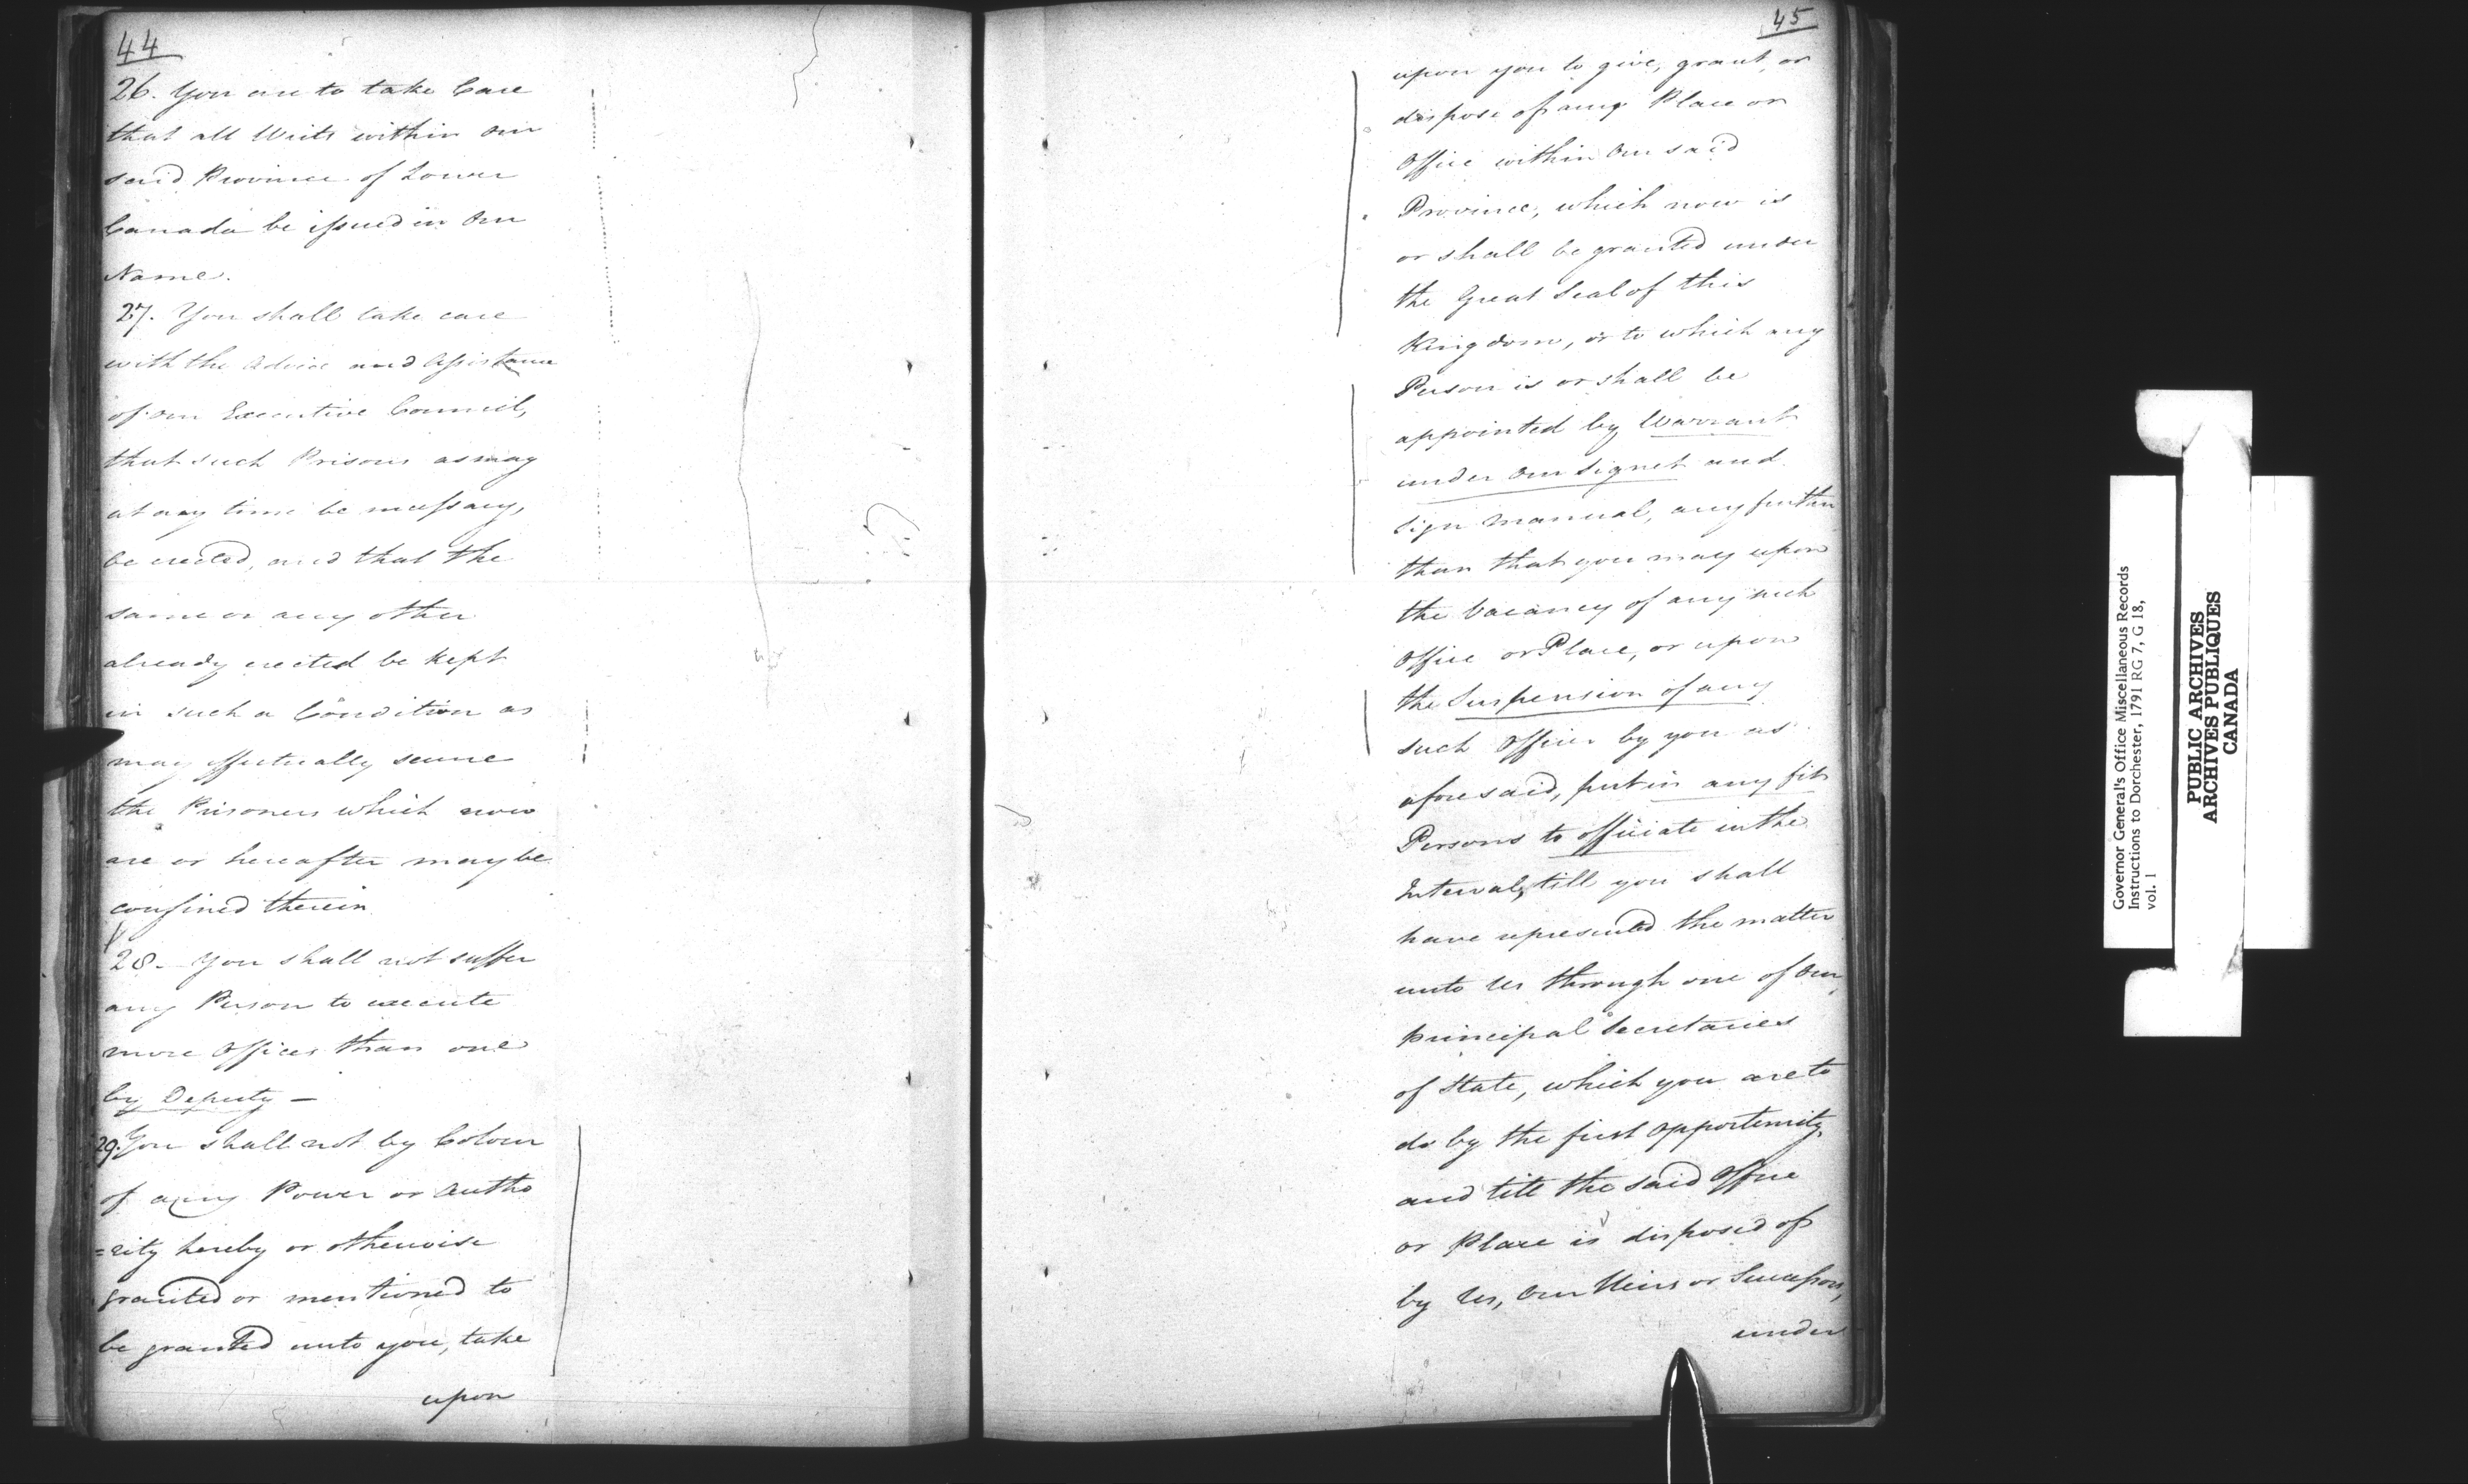 44
26. You are to take Care
that all Writs within our
said Province of Lower
Canada be issued in Our
Name.
27. You shall take care
with the Advice and Assistance
of our Executive Council,
that such Prisons as may
at any time be necessary,
be erected, and that the
same or any other
already erected be kept
in such a Condition as
may effectually secure
the Prisoners which now
are or hereafter may be
confined therein
28. You shall not suffer
any Person to execute
more Offices than one
by Deputy —
29. You shall not by Colour
of any Power or Autho
=rity hereby or otherwise
granted or mentioned to
be granted unto you, take
upon
45
upon you to give, grant, or
dispose of any Place or
Office within Our said
Province, which now is
or shall be granted under
the Great Seal of this
Kingdom, or to which any
Person is or shall be
appointed by Warrant
under Our Signet and
Sign Manual, any further
than that you may upon
the Vacancy of any such
Office or Place, or upon
the Suspension of any
such Officer by you as
aforesaid, put in any fit
Persons to officiate in the
Interval, till you shall
have represented the matter
unto Us through one of Our
principal Secretaries
of State, which you are to
do by the first opportunity,
and till the said Office
or Place is disposed of
by Us, Our Heirs or Successors,
under
Governor General's Office Miscellaneous Records
Instructions to Dorchester, 1791 RG 7, G 18,
vol. 1
PUBLIC ARCHIVES
ARCHIVES PUBLIQUES
CANADA